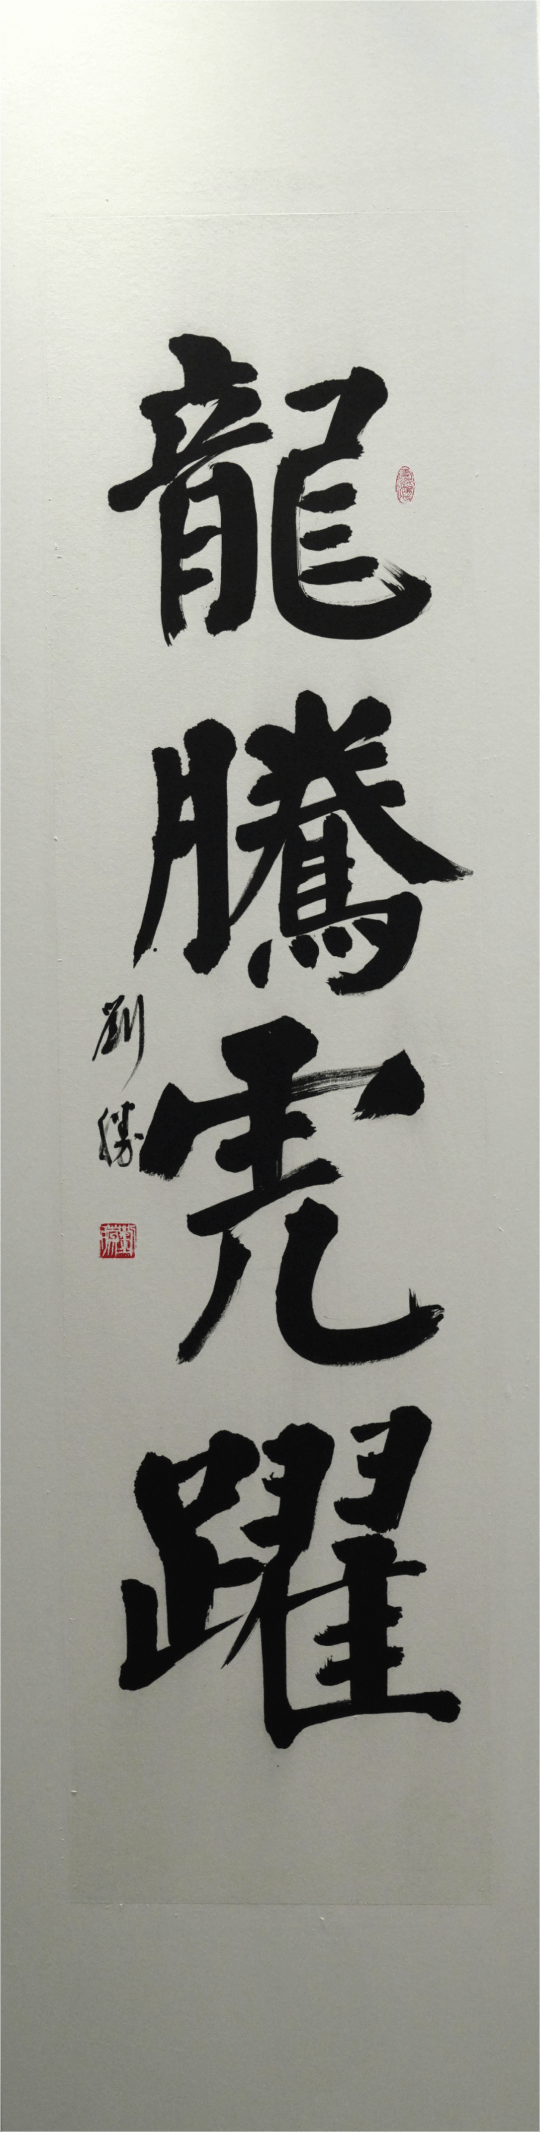 龍騰虎躍
劉勝